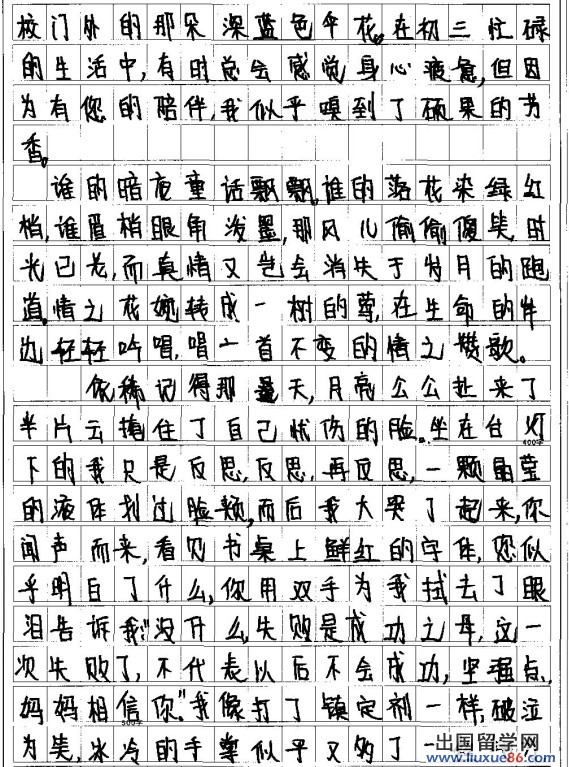 校门外的那朵深蓝色伞花。在初三忙碌
的生活中,有时总会感觉身心疲惫,但因
为有您的陪伴,我似乎嗅到了硕果的芳
香。
谁的暗夜童话飘飘。谁的落花染绿红
梢,谁眉梢眼角泼墨,那风儿偷偷傻笑。时
光已老,而真情又岂会消失于岁月的跑
道。情之花婉转成一树的尊,在生命的岸
边轻轻吟唱,唱一首不变的情之赞歌。
依稀记得那一天,月亮公公扯来了
半片云掩住了自己忧伤的脸。坐在台灯
400字
下的我只是反思,反思,再反思,一颗晶莹
的液体划过脸颊,而后我大哭了起来,你
闻声而来,看见书桌上鲜红的字体,您似
乎明白了什么,你用双手为我拭去了眼
泪告诉我:"没什么,失败是成功之母,这一
次失败了,不代表以后不会成功,坚强点,
妈妈相信你。"我像打了镇定剂一样,破泣
500字
为笑,冰冷的手掌似乎又够了一
出国留学网
www.liuxue86.com